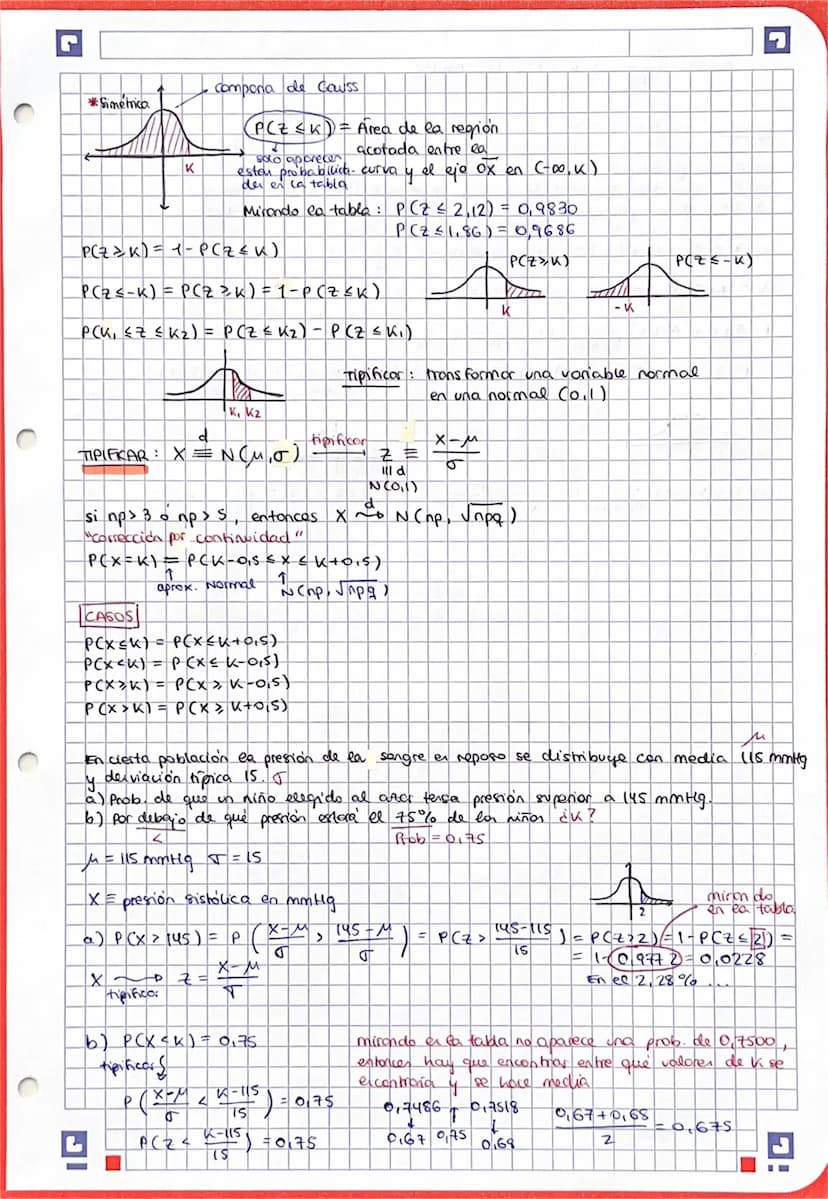 campana de Gauss
*Simétrica
P(Z ≤ K) = Área de la región
acotada entre la
curva y el eje OX en (-∞, K)
solo aparecen
estas probabilida-
des en la tabla
K
Mirando la tabla: P(Z ≤ 2,12) = 0,9830
P(Z ≤ 1,86) = 0,9686
P(Z ≥ K) = 1 - P(Z ≤ K)
P(Z ≥ K)
P(Z ≤ -K)
P(Z ≤ -K) = P(Z ≥ K) = 1 - P(Z ≤ K)
K
-K
P(K₁ ≤ Z ≤ K₂) = P(Z ≤ K₂) - P(Z ≤ K₁)
Tipificar: transformar una variable normal
en una normal (0,1)
K₁ K₂
TIPIFICAR: X ≡ᵈ N(μ,σ) tipificar Z ≡ X-μ / σ
III d
N(0,1)
si np > 3 ó np > 5, entonces X ~ᵈ N(np, √npq)
"corrección por continuidad"
P(X=K) = P(K-0,5 ≤ X ≤ K+0,5)
↑ aprox. Normal ↑ N(np, √npq)
CASOS
P(X≤K) = P(X ≤ K+0,5)
P(X<K) = P(X ≤ K-0,5)
P(X≥K) = P(X ≥ K-0,5)
P(X>K) = P(X ≥ K+0,5)
μ
En cierta población la presión de la sangre en reposo se distribuye con media 115 mmHg
y desviación típica 15. σ
a) Prob. de que un niño elegido al azar tenga presión superior a 145 mmHg.
b) Por debajo de qué presión estará el 75% de los niños ¿K?
<
Prob = 0,75
μ = 115 mmHg σ = 15
X ≡ presión sistólica en mmHg
2
mirando
en la tabla
a) P(X > 145) = P(X-μ / σ > 145-μ / σ) = P(Z > 145-115 / 15) = P(Z>2) = 1 - P(Z ≤ 2) =
= 1 - 0,9772 = 0,0228
X → Z = X-μ / σ
tipificar
En el 2,28% ...
b) P(X < K) = 0,75
tipificar
P(X-μ / σ < K-115 / 15) = 0,75
P(Z < K-115 / 15) = 0,75
mirando en la tabla no aparece una prob. de 0,7500,
entonces hay que encontrar entre qué valores de K se
encontraría y se hace media
0,7486 ↑ 0,7518
↓ 0,75 ↓
0,67 0,68
0,67+0,68 / 2 = 0,675